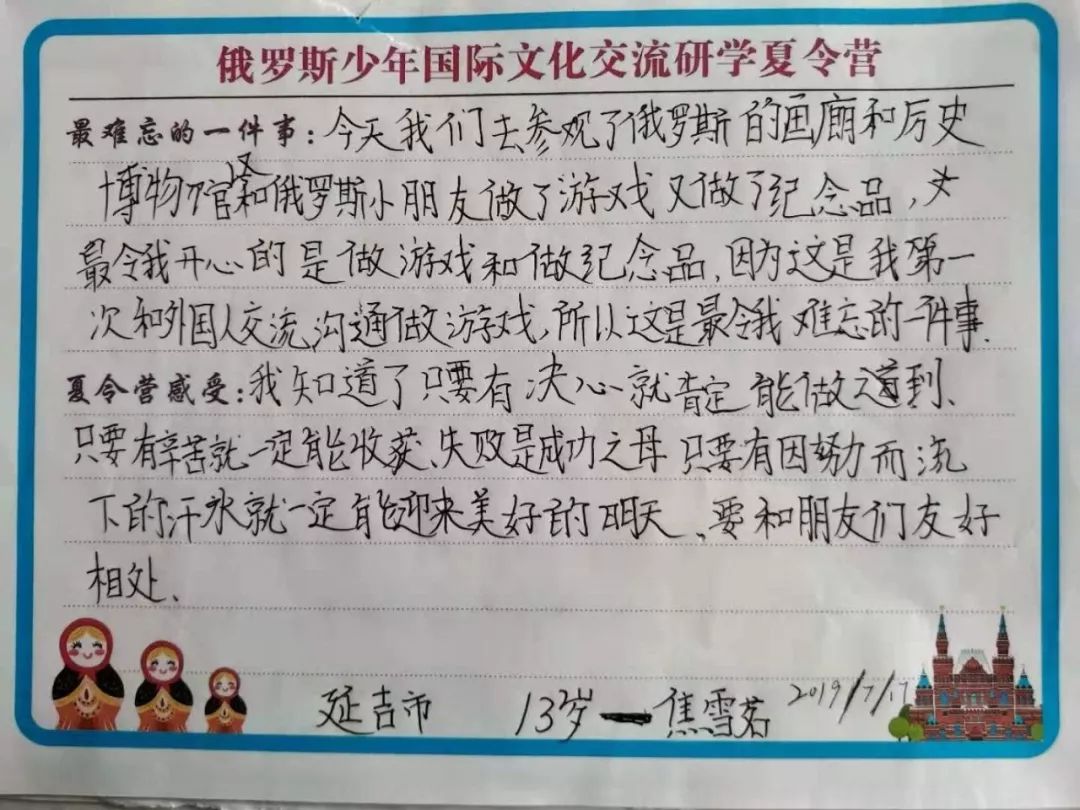 俄罗斯少年国际文化交流研学夏令营
最难忘的一件事：今天我们去参观了俄罗斯的画廊和历史
博物馆，和俄罗斯小朋友做了游戏又做了纪念品，
最令我开心的是做游戏和做纪念品，因为这是我第一
次和外国人交流，沟通做游戏，所以这是最令我难忘的一件事、
夏令营感受：我知道了只要有决心就肯定能做到、
只要有辛苦就一定能收获、失败是成功之母 只要有因努力而流
下的汗水就一定能迎来美好的明天、要和朋友们友好
相处、
延吉市 13岁 焦雪茗 2019/7/17